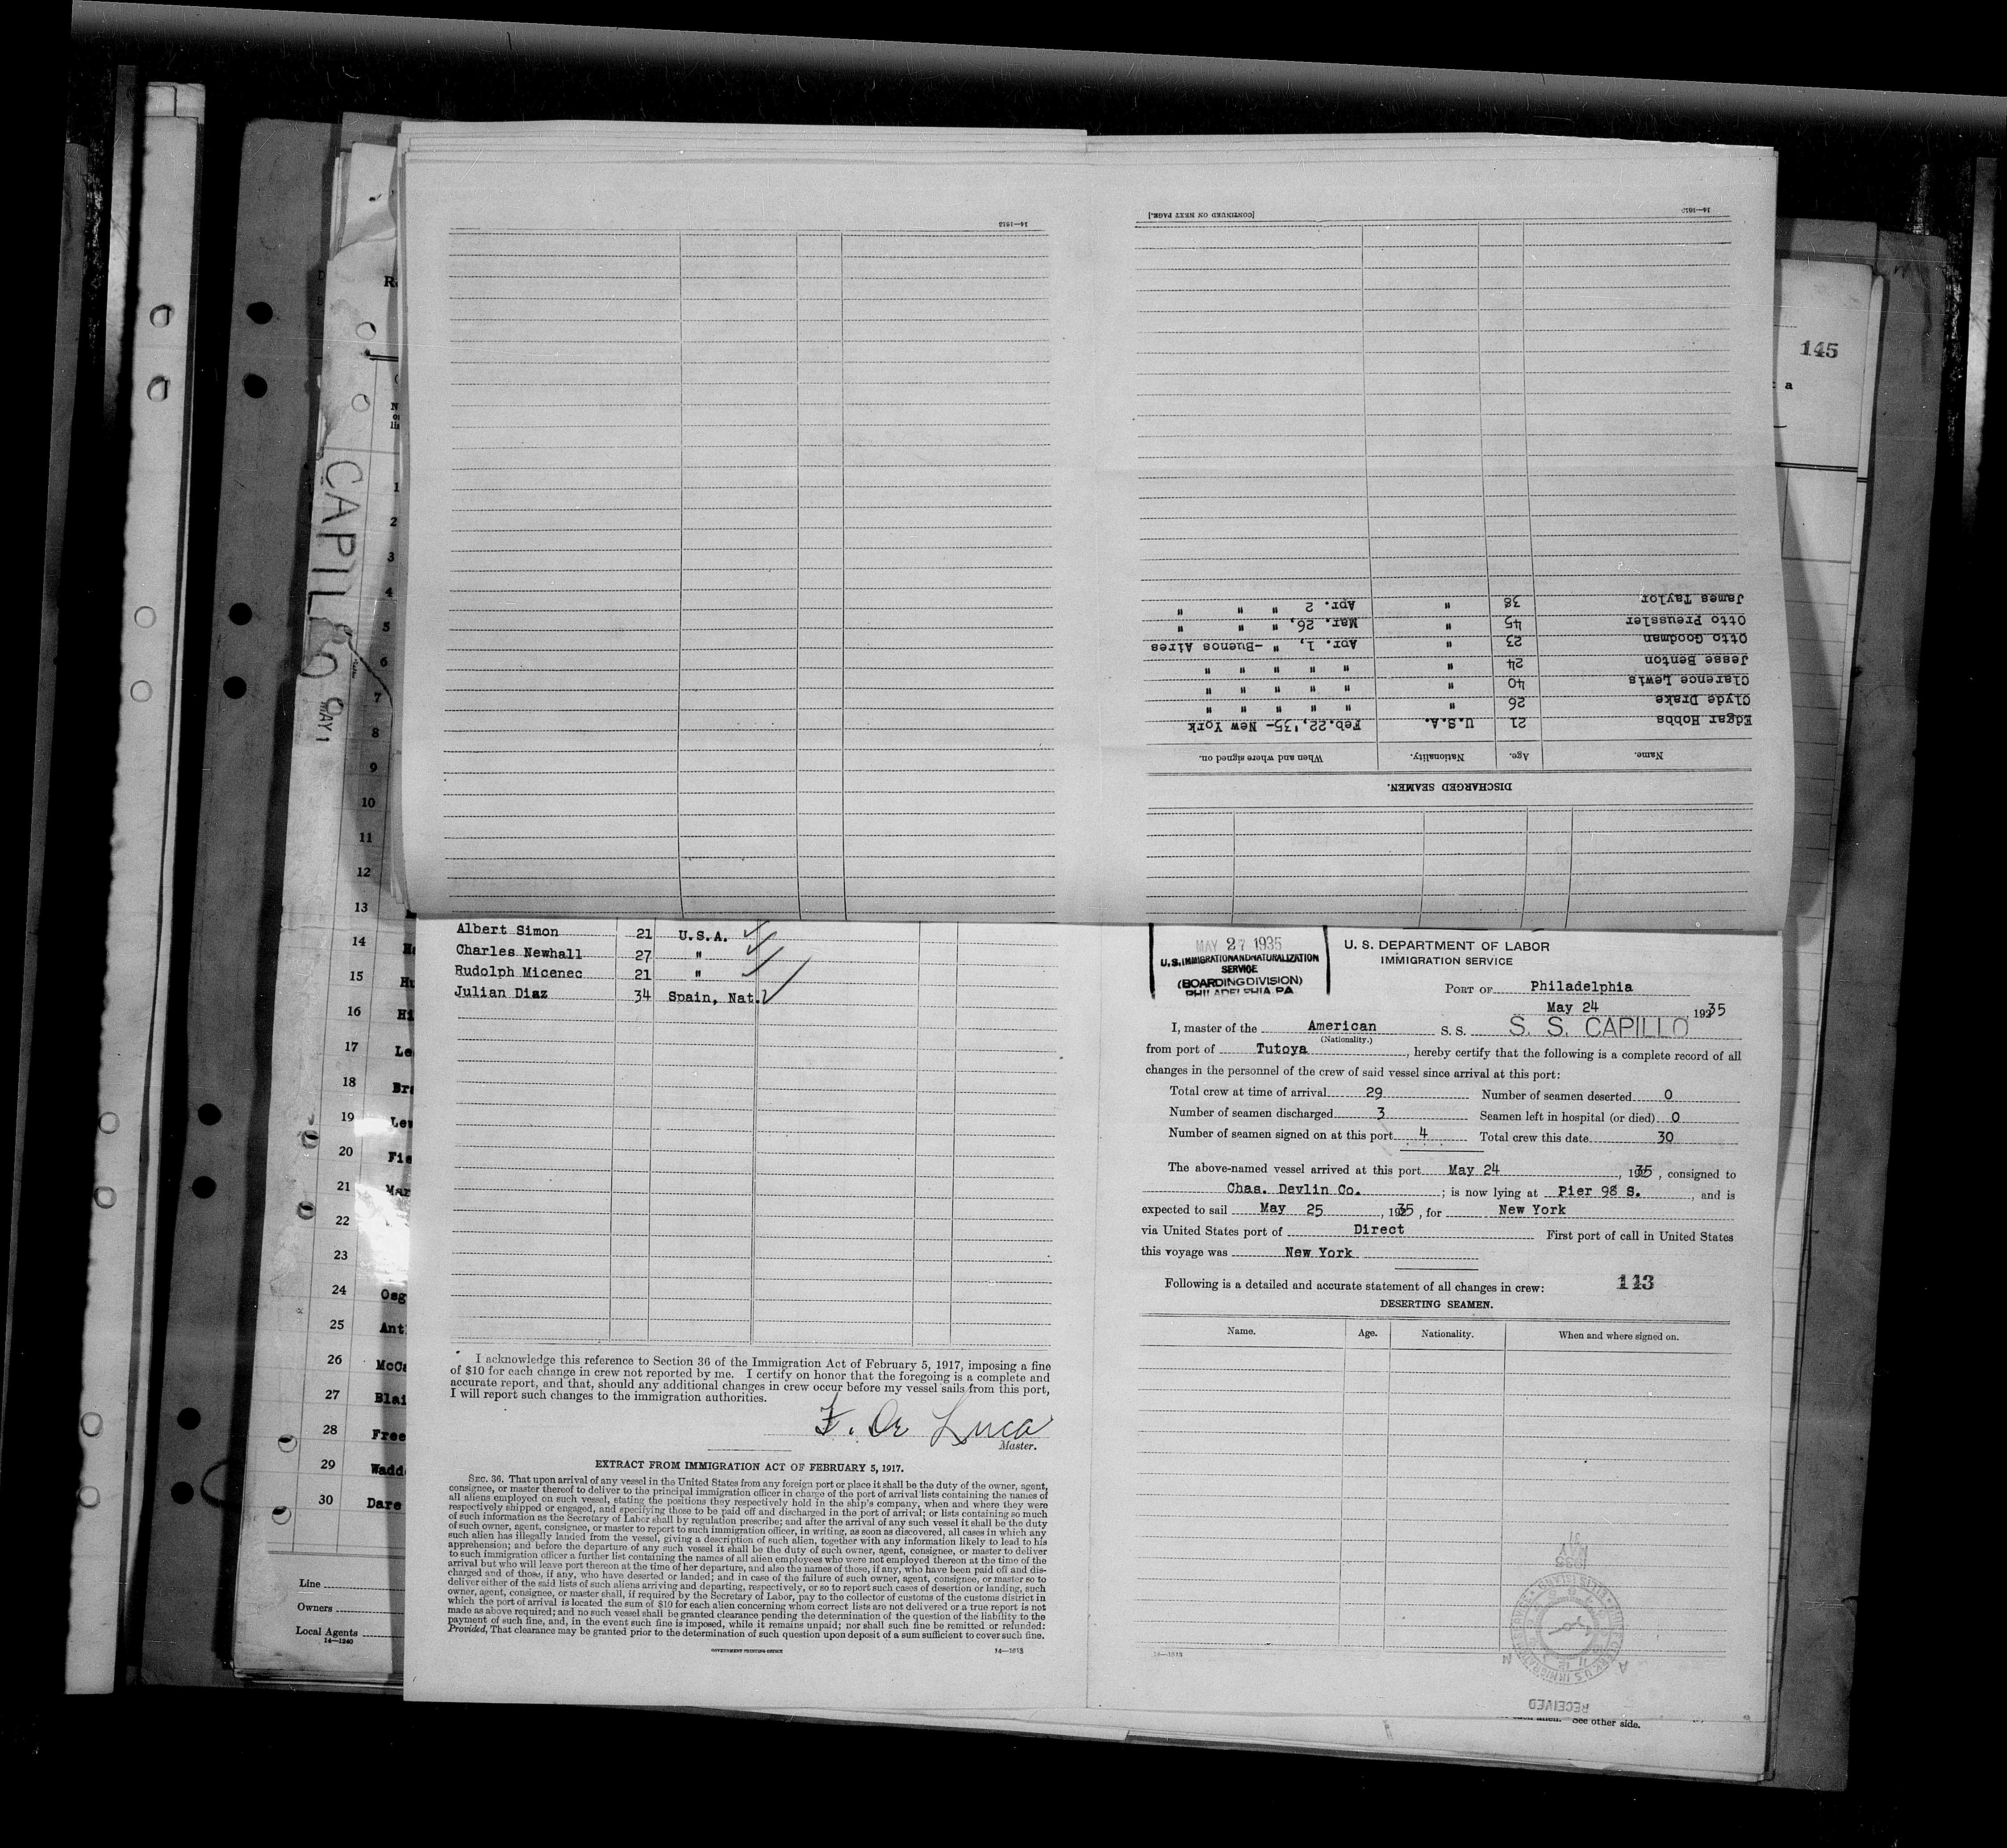 14—1613
[CONTINUED ON NEXT PAGE.]
14—1613
DISCHARGED SEAMEN.
Name. Age. Nationality. When and where signed on.
Edgar Hobbs 21 U.S.A. Feb.22,'35- New York
Clyde Drake 26 " " " " " "
Clarence Lewis 40 " " " " " "
Jesse Benton 24 " " " " " "
Otto Goodman 23 " Apr. 1, " -Buenos Aires
Otto Preussler 45 " Mar. 26, " " "
James Taylor 38 " Apr. 2 " " "
145
a
CAPILLO
MAY 1
1
2
3
4
5
6
7
8
9
10
11
12
13
14
15
16
17
18
19
20
21
22
23
24
25
26
27
28
29
30
Line
Owners
Local Agents
14—1240
Albert Simon 21 U.S.A.
Charles Newhall 27 "
Rudolph Micenec 21 "
Julian Diaz 34 Spain, Nat.
I acknowledge this reference to Section 36 of the Immigration Act of February 5, 1917, imposing a fine
of $10 for each change in crew not reported by me. I certify on honor that the foregoing is a complete and
accurate report, and that, should any additional changes in crew occur before my vessel sails from this port,
I will report such changes to the immigration authorities.
F. De Luca
Master.
EXTRACT FROM IMMIGRATION ACT OF FEBRUARY 5, 1917.
SEC. 36. That upon arrival of any vessel in the United States from any foreign port or place it shall be the duty of the owner, agent,
consignee, or master thereof to deliver to the principal immigration officer in charge of the port of arrival lists containing the names of
all aliens employed on such vessel, stating the positions they respectively hold in the ship's company, when and where they were
respectively shipped or engaged, and specifying those to be paid off and discharged in the port of arrival; or lists containing so much
of such information as the Secretary of Labor shall by regulation prescribe; and after the arrival of any such vessel it shall be the duty
of such owner, agent, consignee, or master to report to such immigration officer, in writing, as soon as discovered, all cases in which any
such alien has illegally landed from the vessel, giving a description of such alien, together with any information likely to lead to his
apprehension; and before the departure of any such vessel it shall be the duty of such owner, agent, consignee, or master to deliver
to such immigration officer a further list containing the names of all alien employees who were not employed thereon at the time of the
arrival but who will leave port thereon at the time of her departure, and also the names of those, if any, who have been paid off and dis-
charged and of those, if any, who have deserted or landed; and in case of the failure of such owner, agent, consignee, or master so to
deliver either of the said lists of such aliens arriving and departing, respectively, or so to report such cases of desertion or landing, such
owner, agent, consignee, or master shall, if required by the Secretary of Labor, pay to the collector of customs of the customs district in
which the port of arrival is located the sum of $10 for each alien concerning whom correct lists are not delivered or a true report is not
made as above required; and no such vessel shall be granted clearance pending the determination of the question of the liability to the
payment of such fine, and, in the event such fine is imposed, while it remains unpaid; nor shall such fine be remitted or refunded:
Provided, That clearance may be granted prior to the determination of such question upon deposit of a sum sufficient to cover such fine.
GOVERNMENT PRINTING OFFICE
14—1613
MAY 27 1935
U.S. IMMIGRATION AND NATURALIZATION
SERVICE
(BOARDING DIVISION)
PHILADELPHIA, PA.
U. S. DEPARTMENT OF LABOR
IMMIGRATION SERVICE
PORT OF Philadelphia
May 24 1935
I, master of the American S. S. S. S. CAPILLO
(Nationality.)
from port of Tutoya, hereby certify that the following is a complete record of all
changes in the personnel of the crew of said vessel since arrival at this port:
Total crew at time of arrival 29 Number of seamen deserted 0
Number of seamen discharged 3 Seamen left in hospital (or died) 0
Number of seamen signed on at this port 4 Total crew this date 30
The above-named vessel arrived at this port May 24, 1935, consigned to
Chas. Devlin Co.; is now lying at Pier 98 S., and is
expected to sail May 25, 1935, for New York
via United States port of Direct First port of call in United States
this voyage was New York
Following is a detailed and accurate statement of all changes in crew: 143
DESERTING SEAMEN.
Name. Age. Nationality. When and where signed on.
14—1613
1935
MAY
31
RECEIVED
See other side.